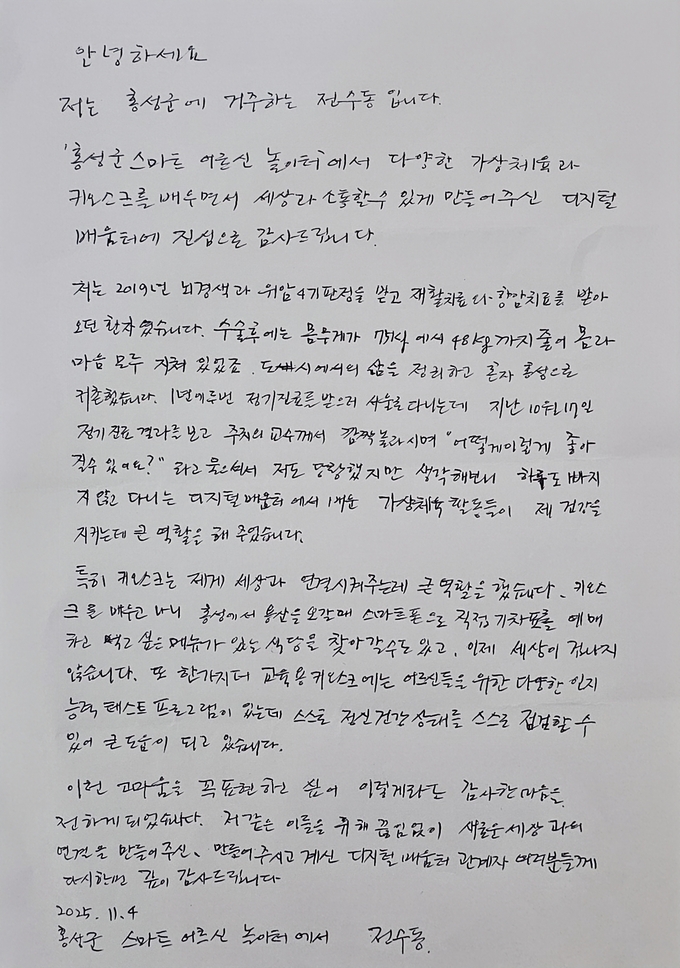 안녕하세요
저는 홍성군에 거주하는 전수동입니다.
'홍성군 스마트 어르신 놀이터'에서 다양한 가상체육과
키오스크를 배우면서 세상과 소통할수 있게 만들어주신 디지털
배움터에 진심으로 감사드립니다.
저는 2019년 뇌경색과 위암4기판정을 받고 재활치료와 항암치료를 받아
오던 환자였습니다. 수술후에는 몸무게가 75kg에서 48kg까지 줄어 몸과
마음 모두 지쳐 있었죠. 도시에서의 삶을 정리하고 혼자 홍성으로
귀촌했습니다. 1년에두번 정기진료를받으러 서울로다니는데 지난 10월17일
정기진료 결과를보고 주치의 교수께서 깜짝놀라시며 "어떻게이렇게 좋아
질수 있어요?" 라고 물으셔서 저도 당황했지만 생각해보니 하루도 빠지
지않고 다니는 디지털배움터에서 배운 가상체육활동들이 제 건강을
지키는데 큰 역할을 해 주었습니다.
특히 키오스크는 제게 세상과 연결시켜주는데 큰역할을 했습니다. 키오스
크를 배우고 나니 홍성에서 용산을오갈때 스마트폰으로 직접기차표를 예매
하고 먹고싶은메뉴가 있는 식당을 찾아갈수도있고, 이제 세상이 겁나지
않습니다. 또 한가지더 교육용키오스크에는 어르신들을 위한 다양한 인지
능력테스트프로그램이 있는데 스스로 정신건강상태를 스스로 점검할 수
있어 큰도움이 되고 있습니다.
이런 고마움을 꼭표현하고 싶어 이렇게라도 감사한마음을
전하게되었습니다. 저같은 이들을 위해 끊임없이 새로운세상과의
연결을 만들어주신, 만들어주시고계신 디지털배움터 관계자 여러분들께
다시한번 깊이 감사드립니다
2025.11.4
홍성군 스마트 어르신 놀이터에서 전수동.